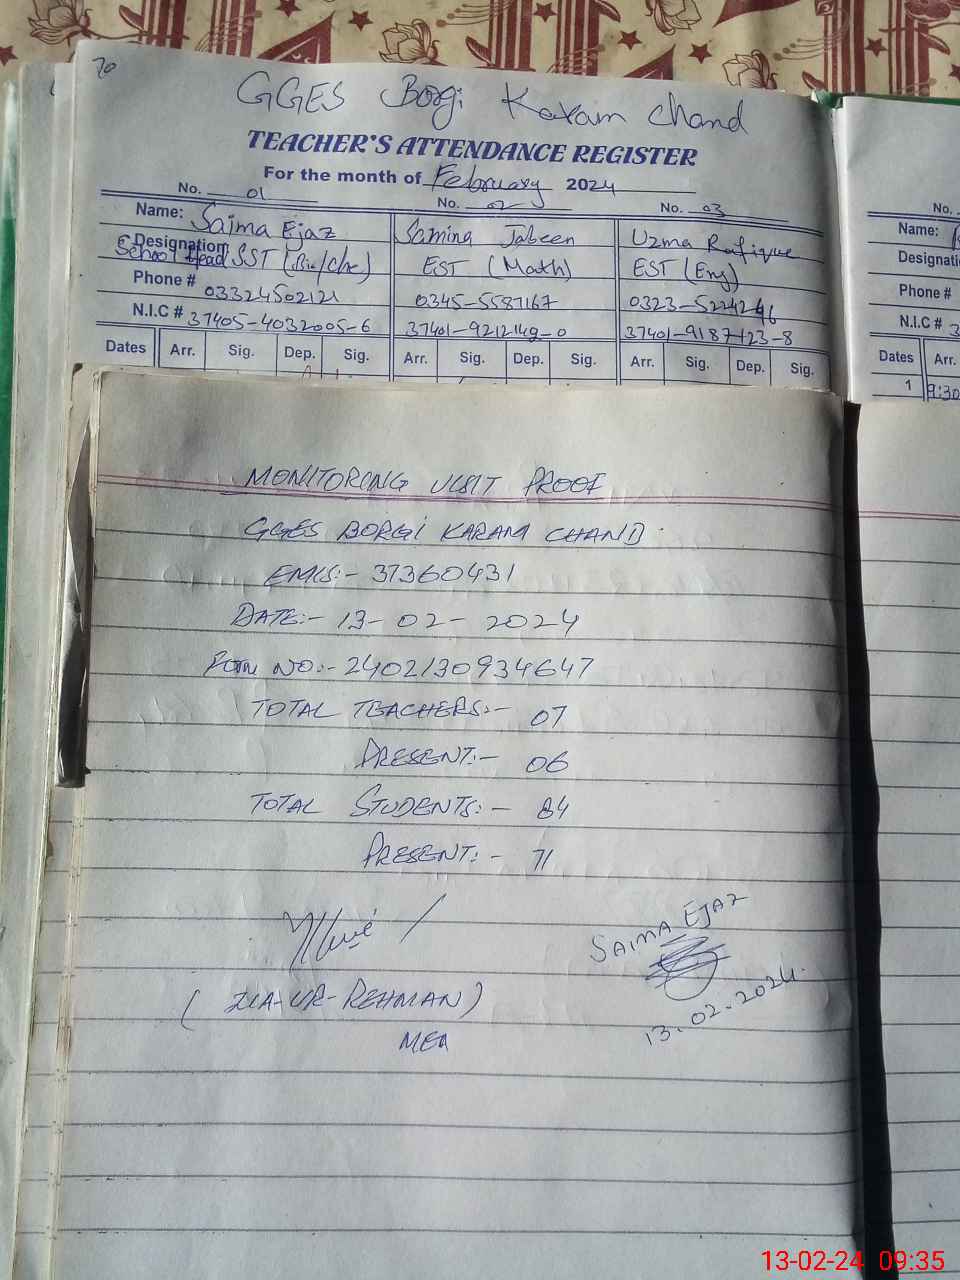 70
GGES Borgi Karam Chand
TEACHER'S ATTENDANCE REGISTER
For the month of February 2024
No. 01 No. 02 No. 03 No.
Name: Saima Ejaz Samina Jabeen Uzma Rafique Name:
Designation School Head SST (Bio/Che) EST (Math) EST (Eng) Designati
Phone # 03324502121 0345-5587167 0323-5224246 Phone #
N.I.C # 37405-4032005-6 37401-9212149-0 37401-9187123-8 N.I.C # 3
Dates Arr. Sig. Dep. Sig. Arr. Sig. Dep. Sig. Arr. Sig. Dep. Sig. Dates Arr.
1 9:30
MONITORING VISIT PROOF
GGES BORGI KARAM CHAND.
EMIS:- 37360431
DATE:- 13-02-2024
Form NO:- 2402130934647
TOTAL TEACHERS:- 07
PRESENT:- 06
TOTAL STUDENTS:- 84
PRESENT:- 71
SAIMA EJAZ
(ZIA-UR-REHMAN)
13.02.2024.
MEA
13-02-24 09:35